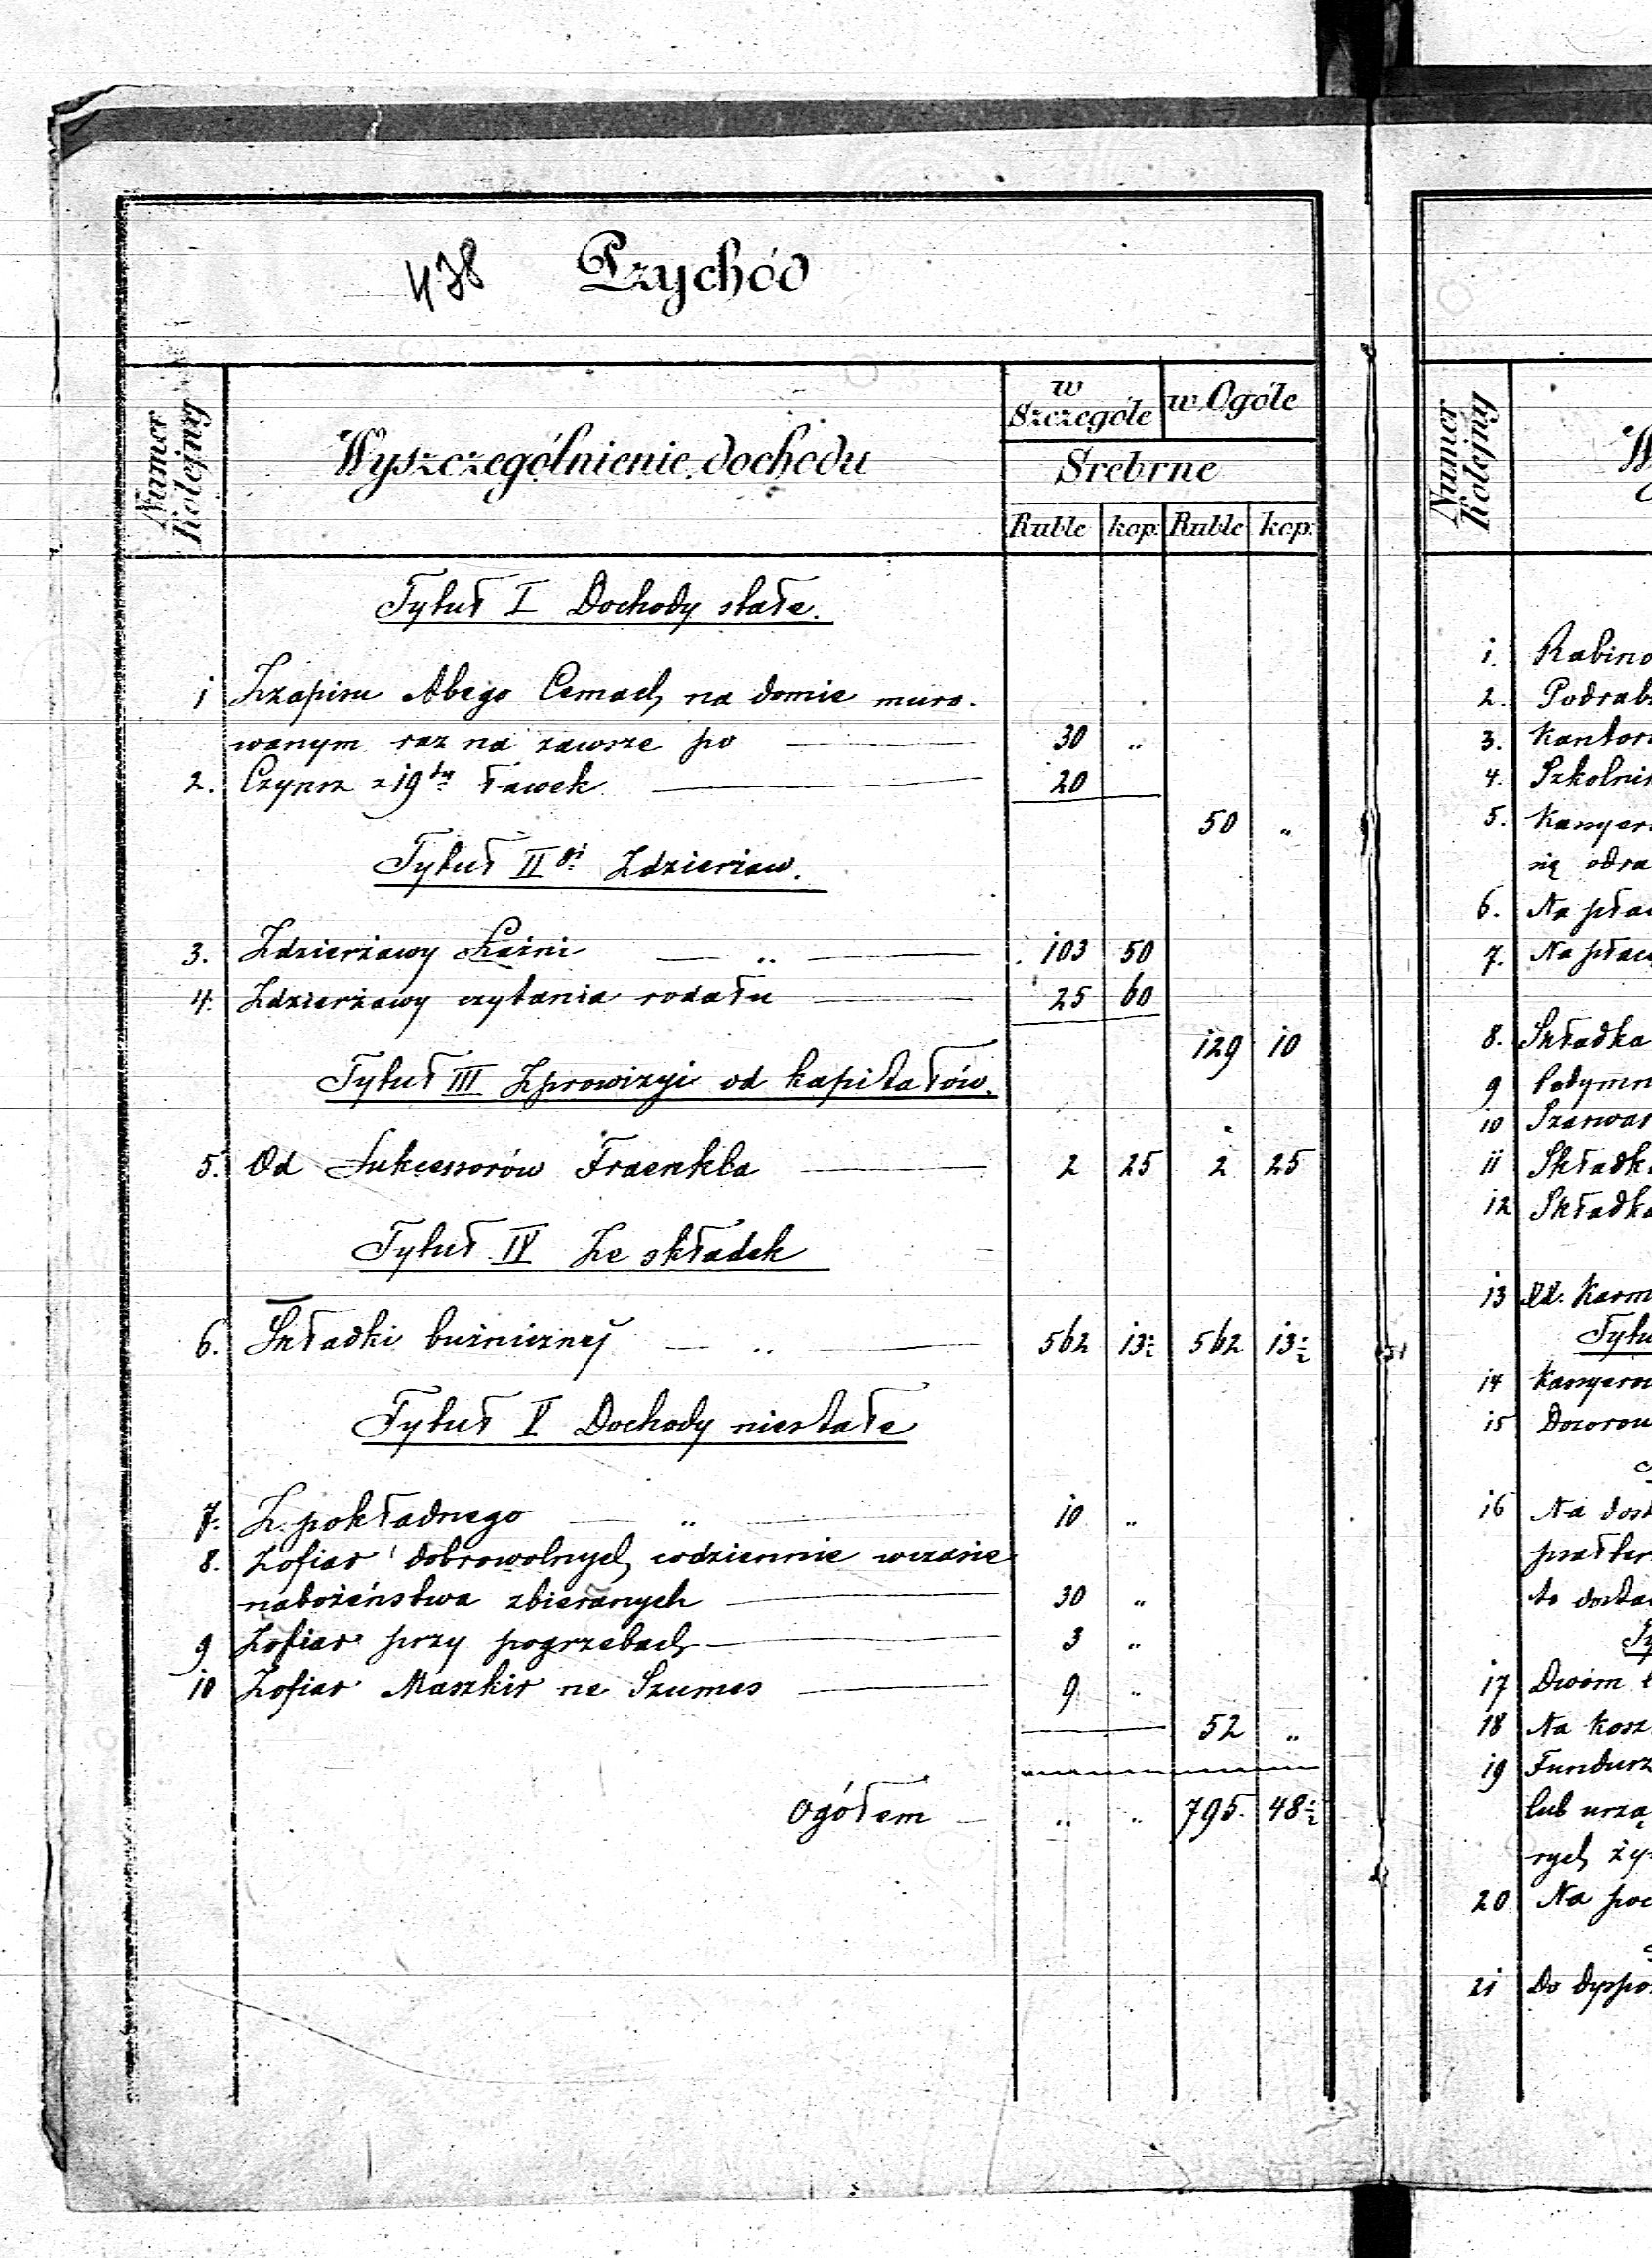 438 Przychód
Numer Kolejny
Wyszczególnienie dochodu
w Szczególe
w Ogóle
Srebrne
Ruble kop. Ruble kop.
Tytuł I Dochody stałe.
1 Zzapisu Abego Cemach na domie muro-
wanym raz na zawsze po 30 "
2. Czynsz z 19tu ławek 20
50 "
Tytuł II gi Zdzierżaw.
3. Zdzierżawy Łaźni " 103 50
4. Zdzierżawy czytania rodału 25 60
129 10
Tytuł III Zprowizyi od kapitałów.
5. Od Sukcessorów Fraenkla 2 25 2 25
Tytuł IV Ze składek
6. Składki bużnicznej " 562 13½ 562 13½
Tytuł V Dochody niestałe
7. Z pokładnego " 10 "
8. Zofiar dobrowolnych codziennie wczasie
nabożeństwa zbieranych 30 "
9 Zofiar przy pogrzebach 3 "
10 Zofiar Maszkir ne Szumes 9 "
52 "
Ogółem " " 795. 48½
Numer Kolejny
W
1. Rabino
2. Podrab
3. Kantor
4. Szkolni
5. Kassyer
nię odra
6. Na płac
7. Na płac
8. Składka
9 Podymn
10 Szarwar
11 Składk
12 Składka
13 Karm
Tytu
14 Kassyerow
15 Dozorow
16 Na dost
to dosta
Ty
17 Dwóm
18 Na kosz
19 Fundusz
lub urzą
rych ży
20 Na poc
21 Do dyspo